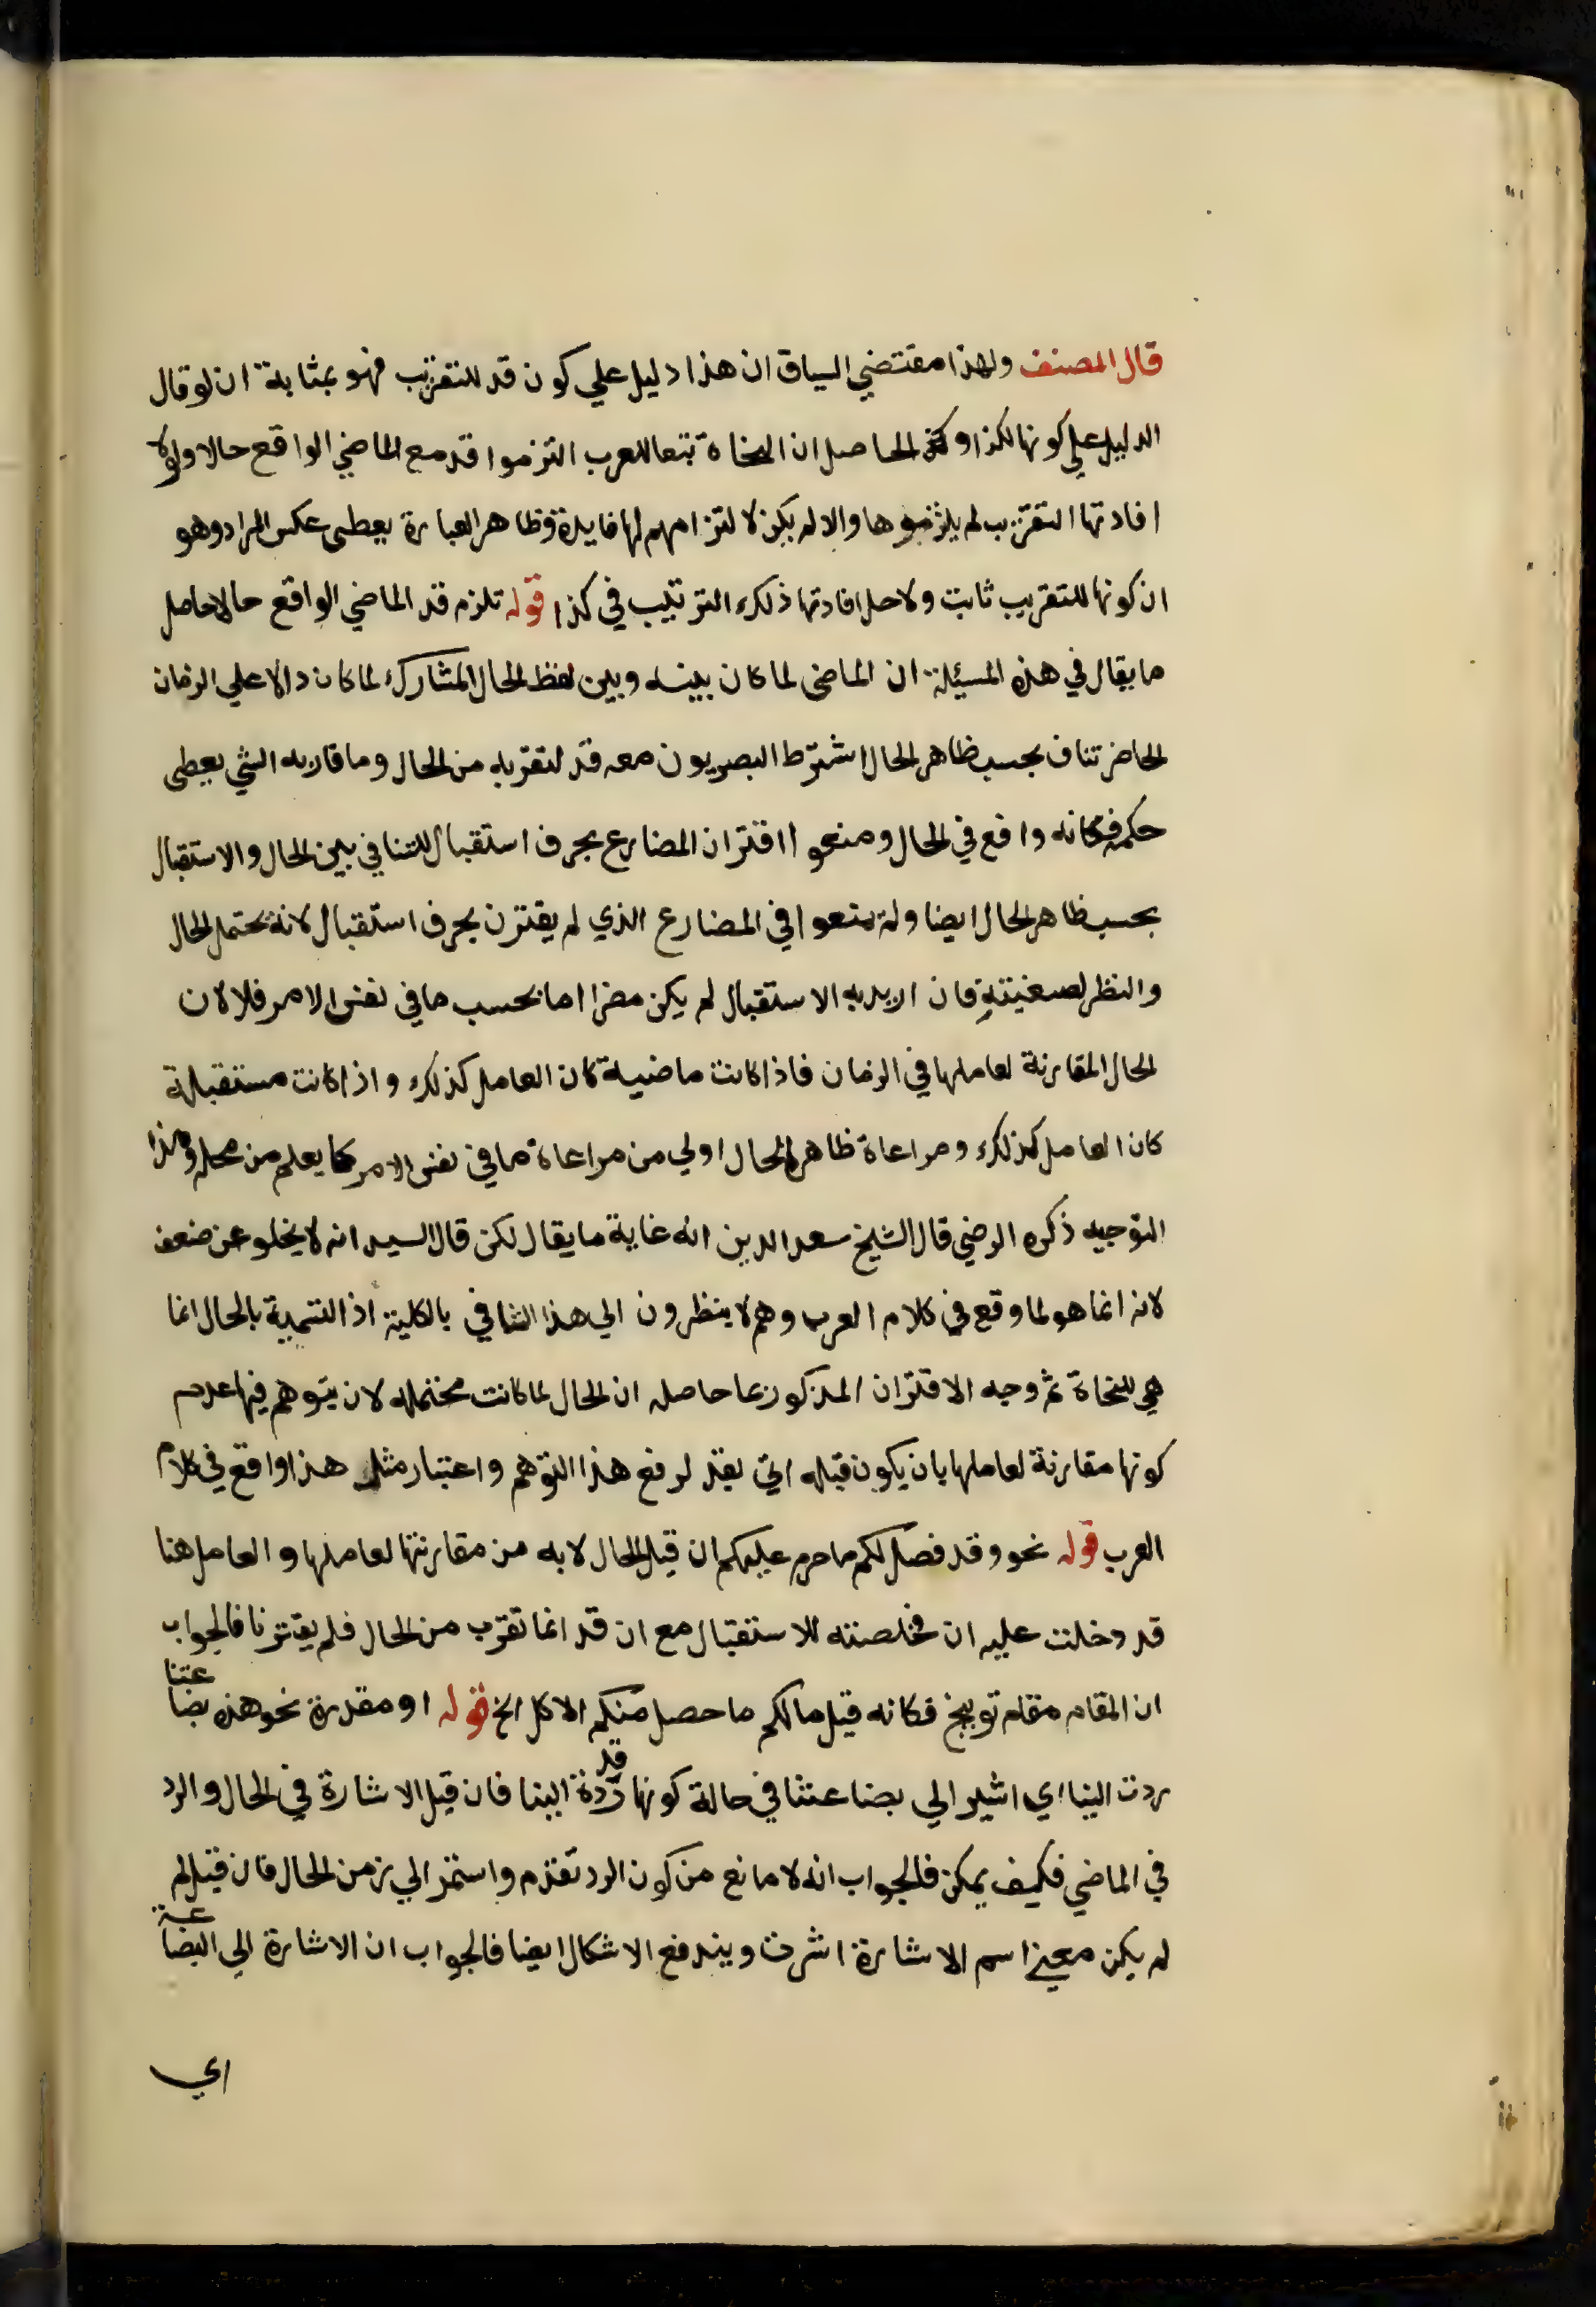 قال المصنف ولهذا مقتضي السياق ان هذا دليل علي كون قد للتقريب فهو بمثابة ان لو قال
الدليل علي كونها لكذا وكذا الحاصل ان النحاة تبعا للعرب التزموا قد مع الماضي الواقع حالا ولولا
افادتها التقريب لم يلزموها والا لم يكن لالتزامهم لها فايدة وظاهر العبارة يعطى عكس المراد وهو
ان كونها للتقريب ثابت ولاجل افادتها ذلك الترتيب في كذا قوله تلزم قد الماضي الواقع حالا حاصل
ما يقال في هذه المسئلة ان الماضى لما كان بينه وبين لفظ الحال المشارك لما كان دالا علي الزمان
الحاضر تناف بحسب ظاهر الحال اشترط البصريون معه قد لتقربه من الحال وما قارب الشي يعطى
حكمه فكانه واقع في الحال ومنعوا اقتران المضارع بحرف استقبال للتنافي بين الحال والاستقبال
بحسب ظاهر الحال ايضا ولم يمنعوا في المضارع الذي لم يقترن بحرف استقبال لانه يحتمل الحال
والنظر لصيغته فان اريد به الاستقبال لم يكن مضرا اما بحسب ما في نفس الامر فلا لان
الحال المقارنة لعاملها في الزمان فاذا كانت ماضية كان العامل كذلك واذا كانت مستقبلة
كان العامل كذلك ومراعاة ظاهر الحال اولي من مراعاة ما في نفس الامر كما يعلم من محله وهذا
التوجيه ذكره الرضي قال الشيخ سعد الدين انه غاية ما يقال لكن قال السيد انه لا يخلو عن ضعف
لانه انما هو لما وقع في كلام العرب وهم لا ينظرون الي هذا التنافي بالكلية اذ التسمية بالحال انما
هي للنحاة ثم وجه الاقتران المذكور بما حاصله ان الحال لما كانت محتمله لان يتوهم فيها عدم
كونها مقارنة لعاملها بان يكون قبله اتي بقد لرفع هذا التوهم واعتبار مثل هذا واقع في كلام
العرب قوله نحو وقد فصل لكم ما حرم عليكم ان قيل الحال لا بد من مقارنتها لعاملها والعامل هنا
قد دخلت عليه ان فخلصته للاستقبال مع ان قد انما تقرب من الحال فلم يقترنا فالجواب
ان المقام مقام توبيخ فكانه قيل مالكم ما حصل منكم الاكل الخ قوله او مقدرة نحو هذه بضاعتنا
ردت الينا اي اشير الي بضاعتنا في حالة كونها قد ردة الينا فان قيل الاشارة في الحال والرد
في الماضي فكيف يمكن فالجواب انه لا مانع من كون الرد تقدم واستمر الي زمن الحال فان قيل لم
لم يكن معنى اسم الاشارة اشرت ويندفع الاشكال ايضا فالجواب ان الاشارة الي البضاعة
اي